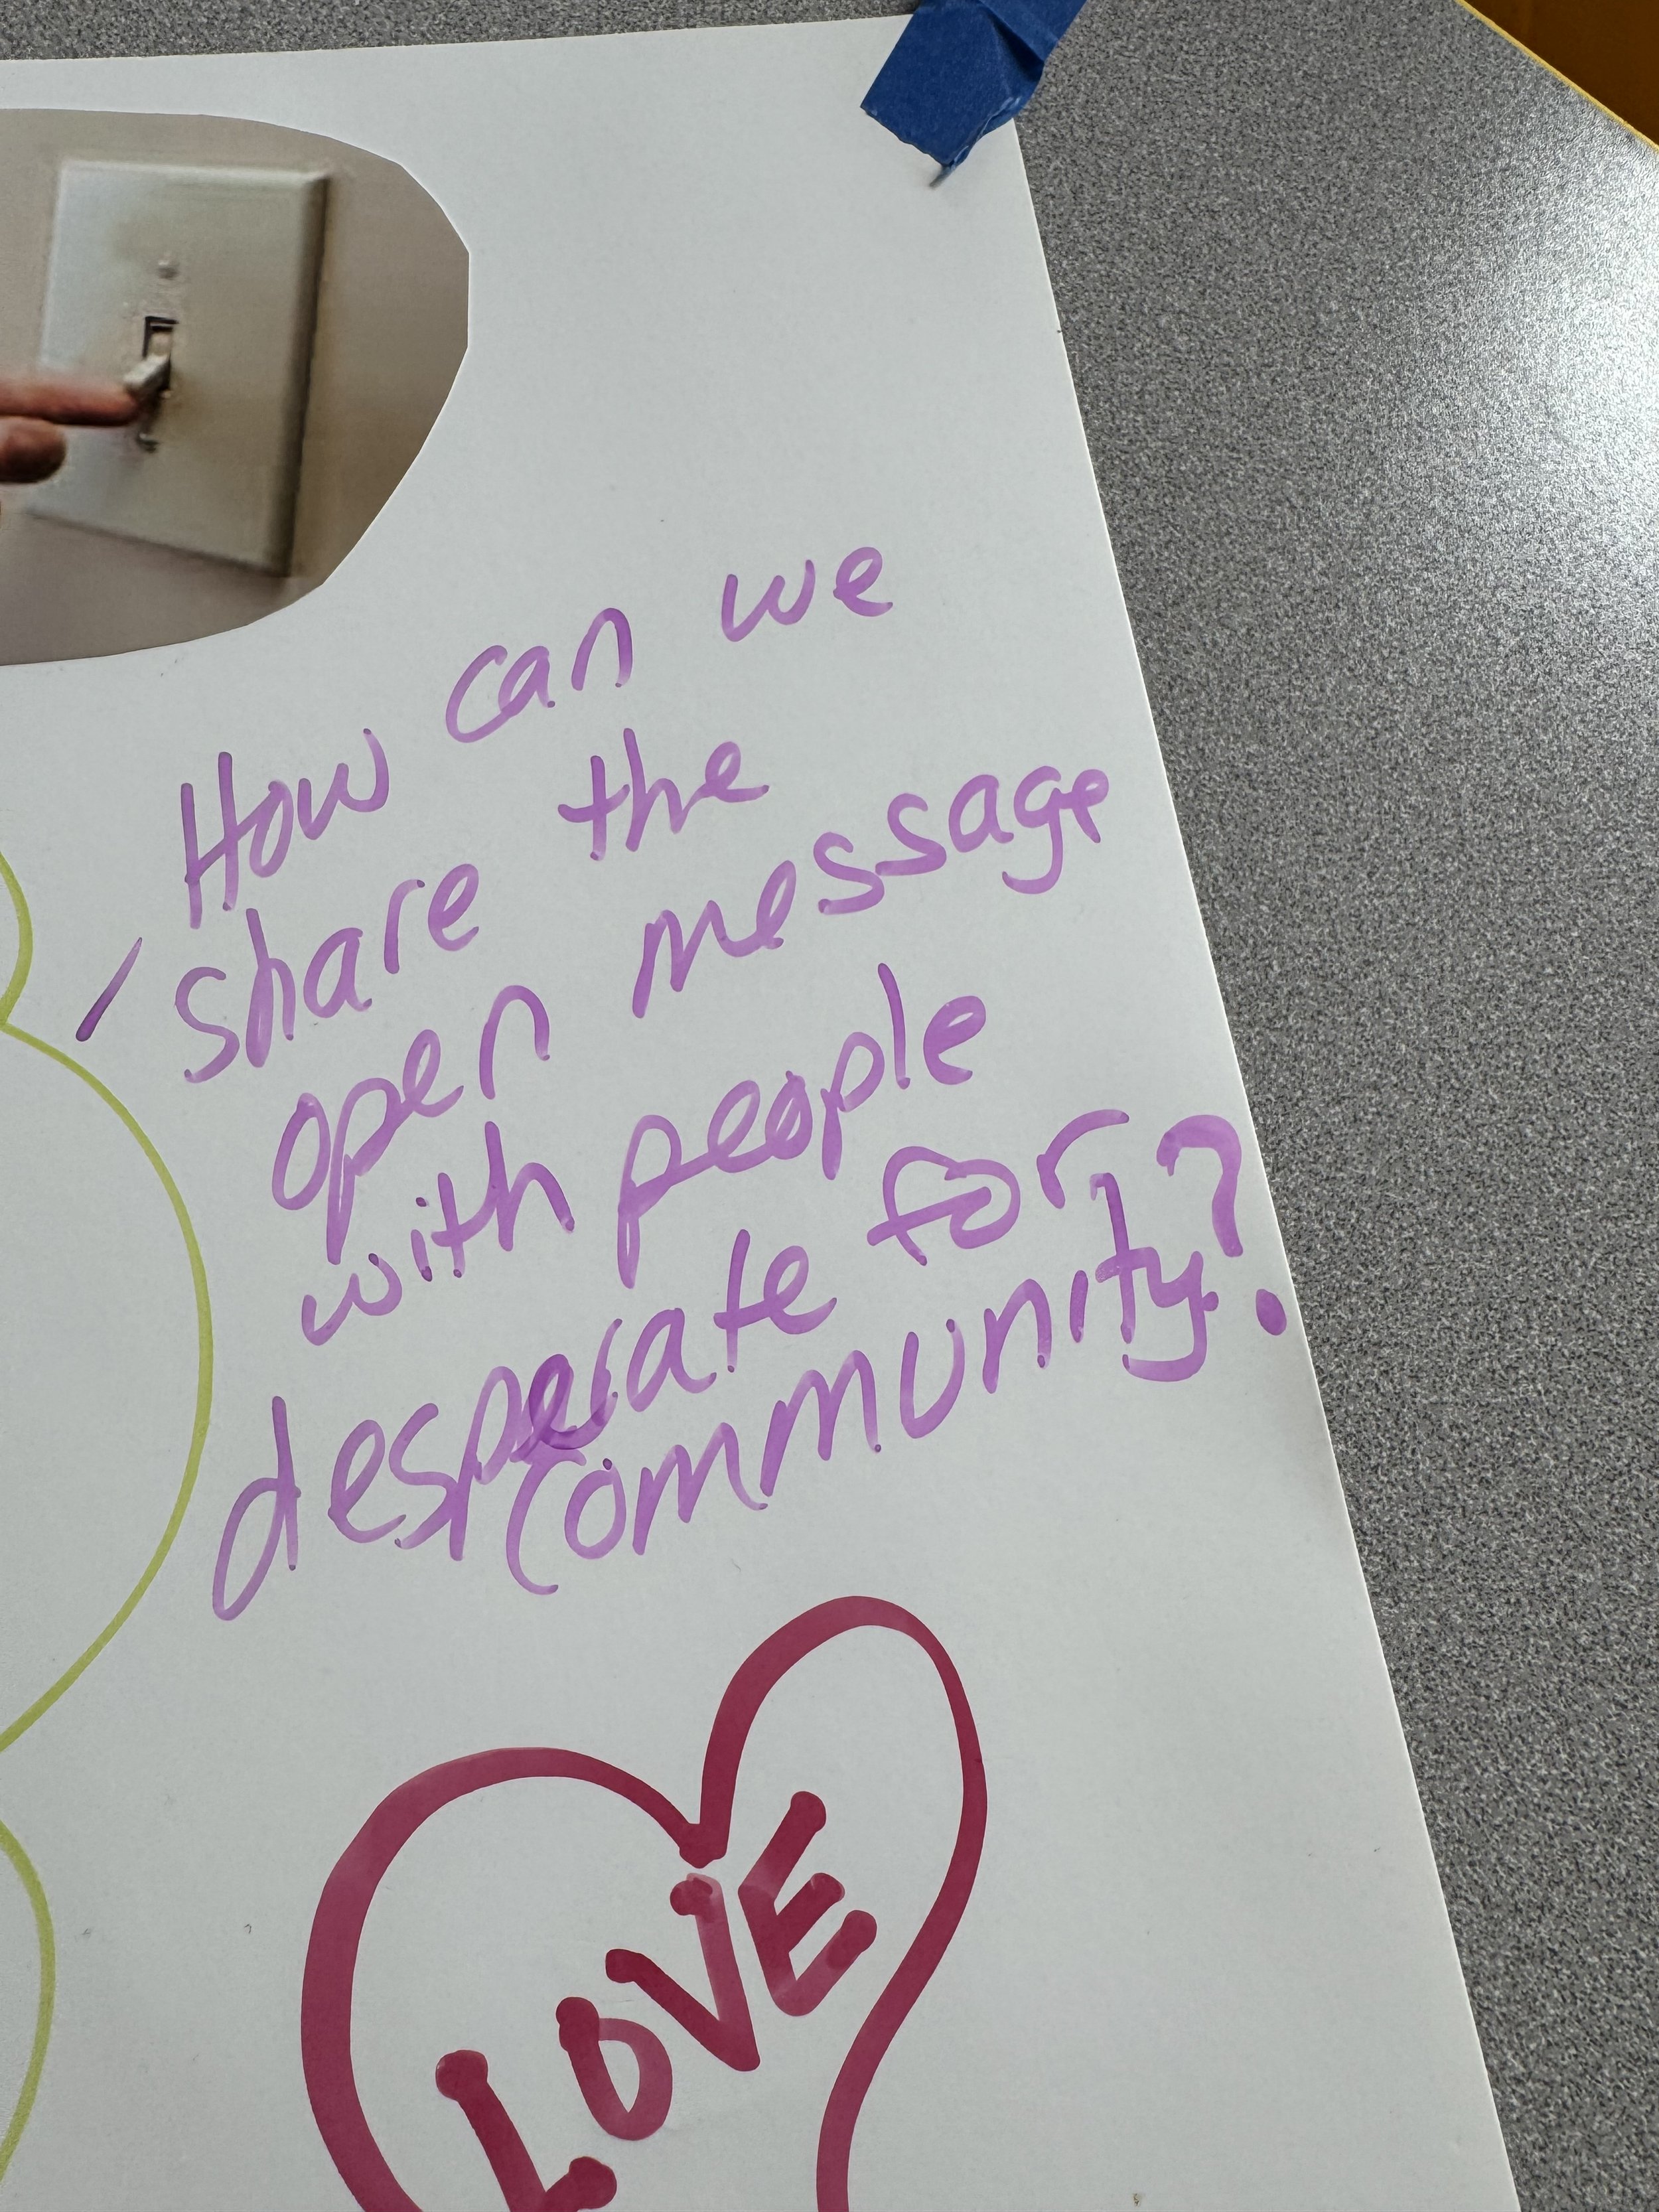 How can we
share the
open message
with people
desperate for
community?
LOVE